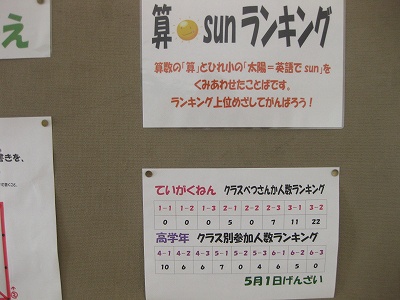 え
算 sun ランキング
算数の「算」とひれ小の「太陽＝英語で sun」を
くみあわせたことばです。
ランキング上位めざしてがんばろう！
きを、
ていがくねん クラスべつさんか人数ランキング
1-1 1-2 1-3 2-1 2-2 3-1 3-2
0 0 5 0 7 11 22
高学年 クラス別参加人数ランキング
4-1 4-2 4-3 5-1 5-2 6-1 6-2 6-3
10 6 6 7 0 4 6 0
5月1日げんざい